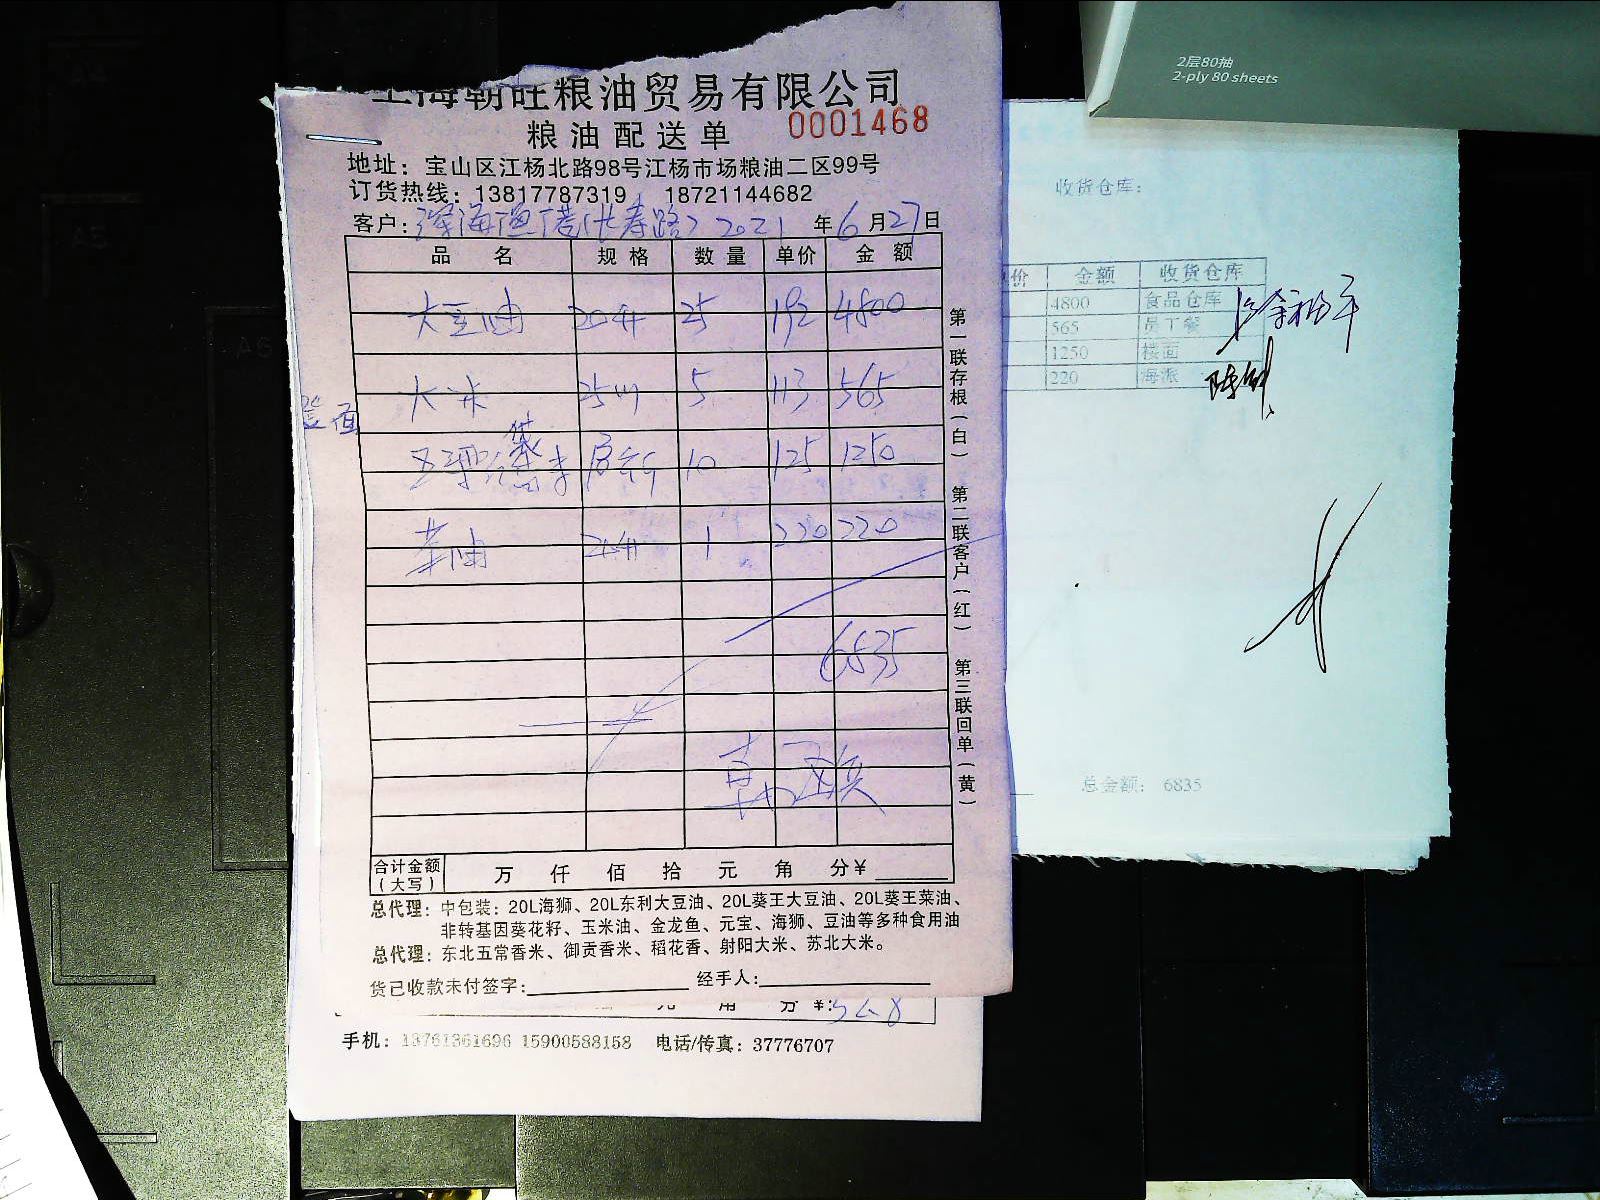 上海朝旺粮油贸易有限公司
粮油配送单 0001468
地址：宝山区江杨北路98号江杨市场粮油二区99号
订货热线：13817787319 18721144682
客户：深海渔港(长寿路) 2021 年 6 月 27 日
品名 规格 数量 单价 金额
大豆油 20升 25 192 4800
大米 25 5 113 565
10 125 1250
菜油 20升 1 220 220
6835
合计金额（大写） 万 仟 佰 拾 元 角 分¥
总代理：中包装：20L海狮、20L东利大豆油、20L葵王大豆油、20L葵王菜油、
非转基因葵花籽、玉米油、金龙鱼、元宝、海狮、豆油等多种食用油
总代理：东北五常香米、御贡香米、稻花香、射阳大米、苏北大米。
货已收款未付签字： 经手人：
第一联存根（白） 第二联客户（红） 第三联回单（黄）
元 角 分¥:
手机：13761361696 15900588158 电话/传真：37776707
2层80抽
2-ply 80 sheets
收货仓库：
价 金额 收货仓库
4800 食品仓库
565 员工餐
1250 楼面
220 海派
总金额： 6835
A5
A6